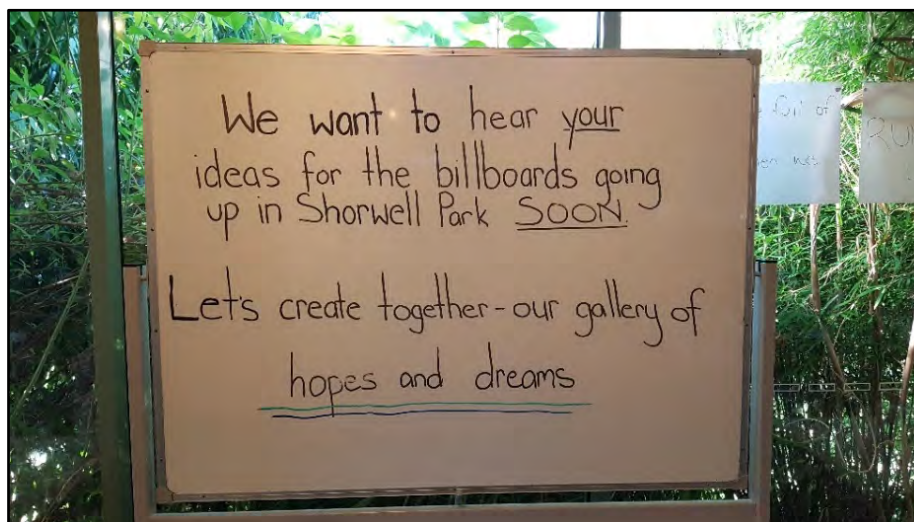 We want to hear your
ideas for the billboards going
up in Shorwell Park SOON.
Let's create together - our gallery of
hopes and dreams
of